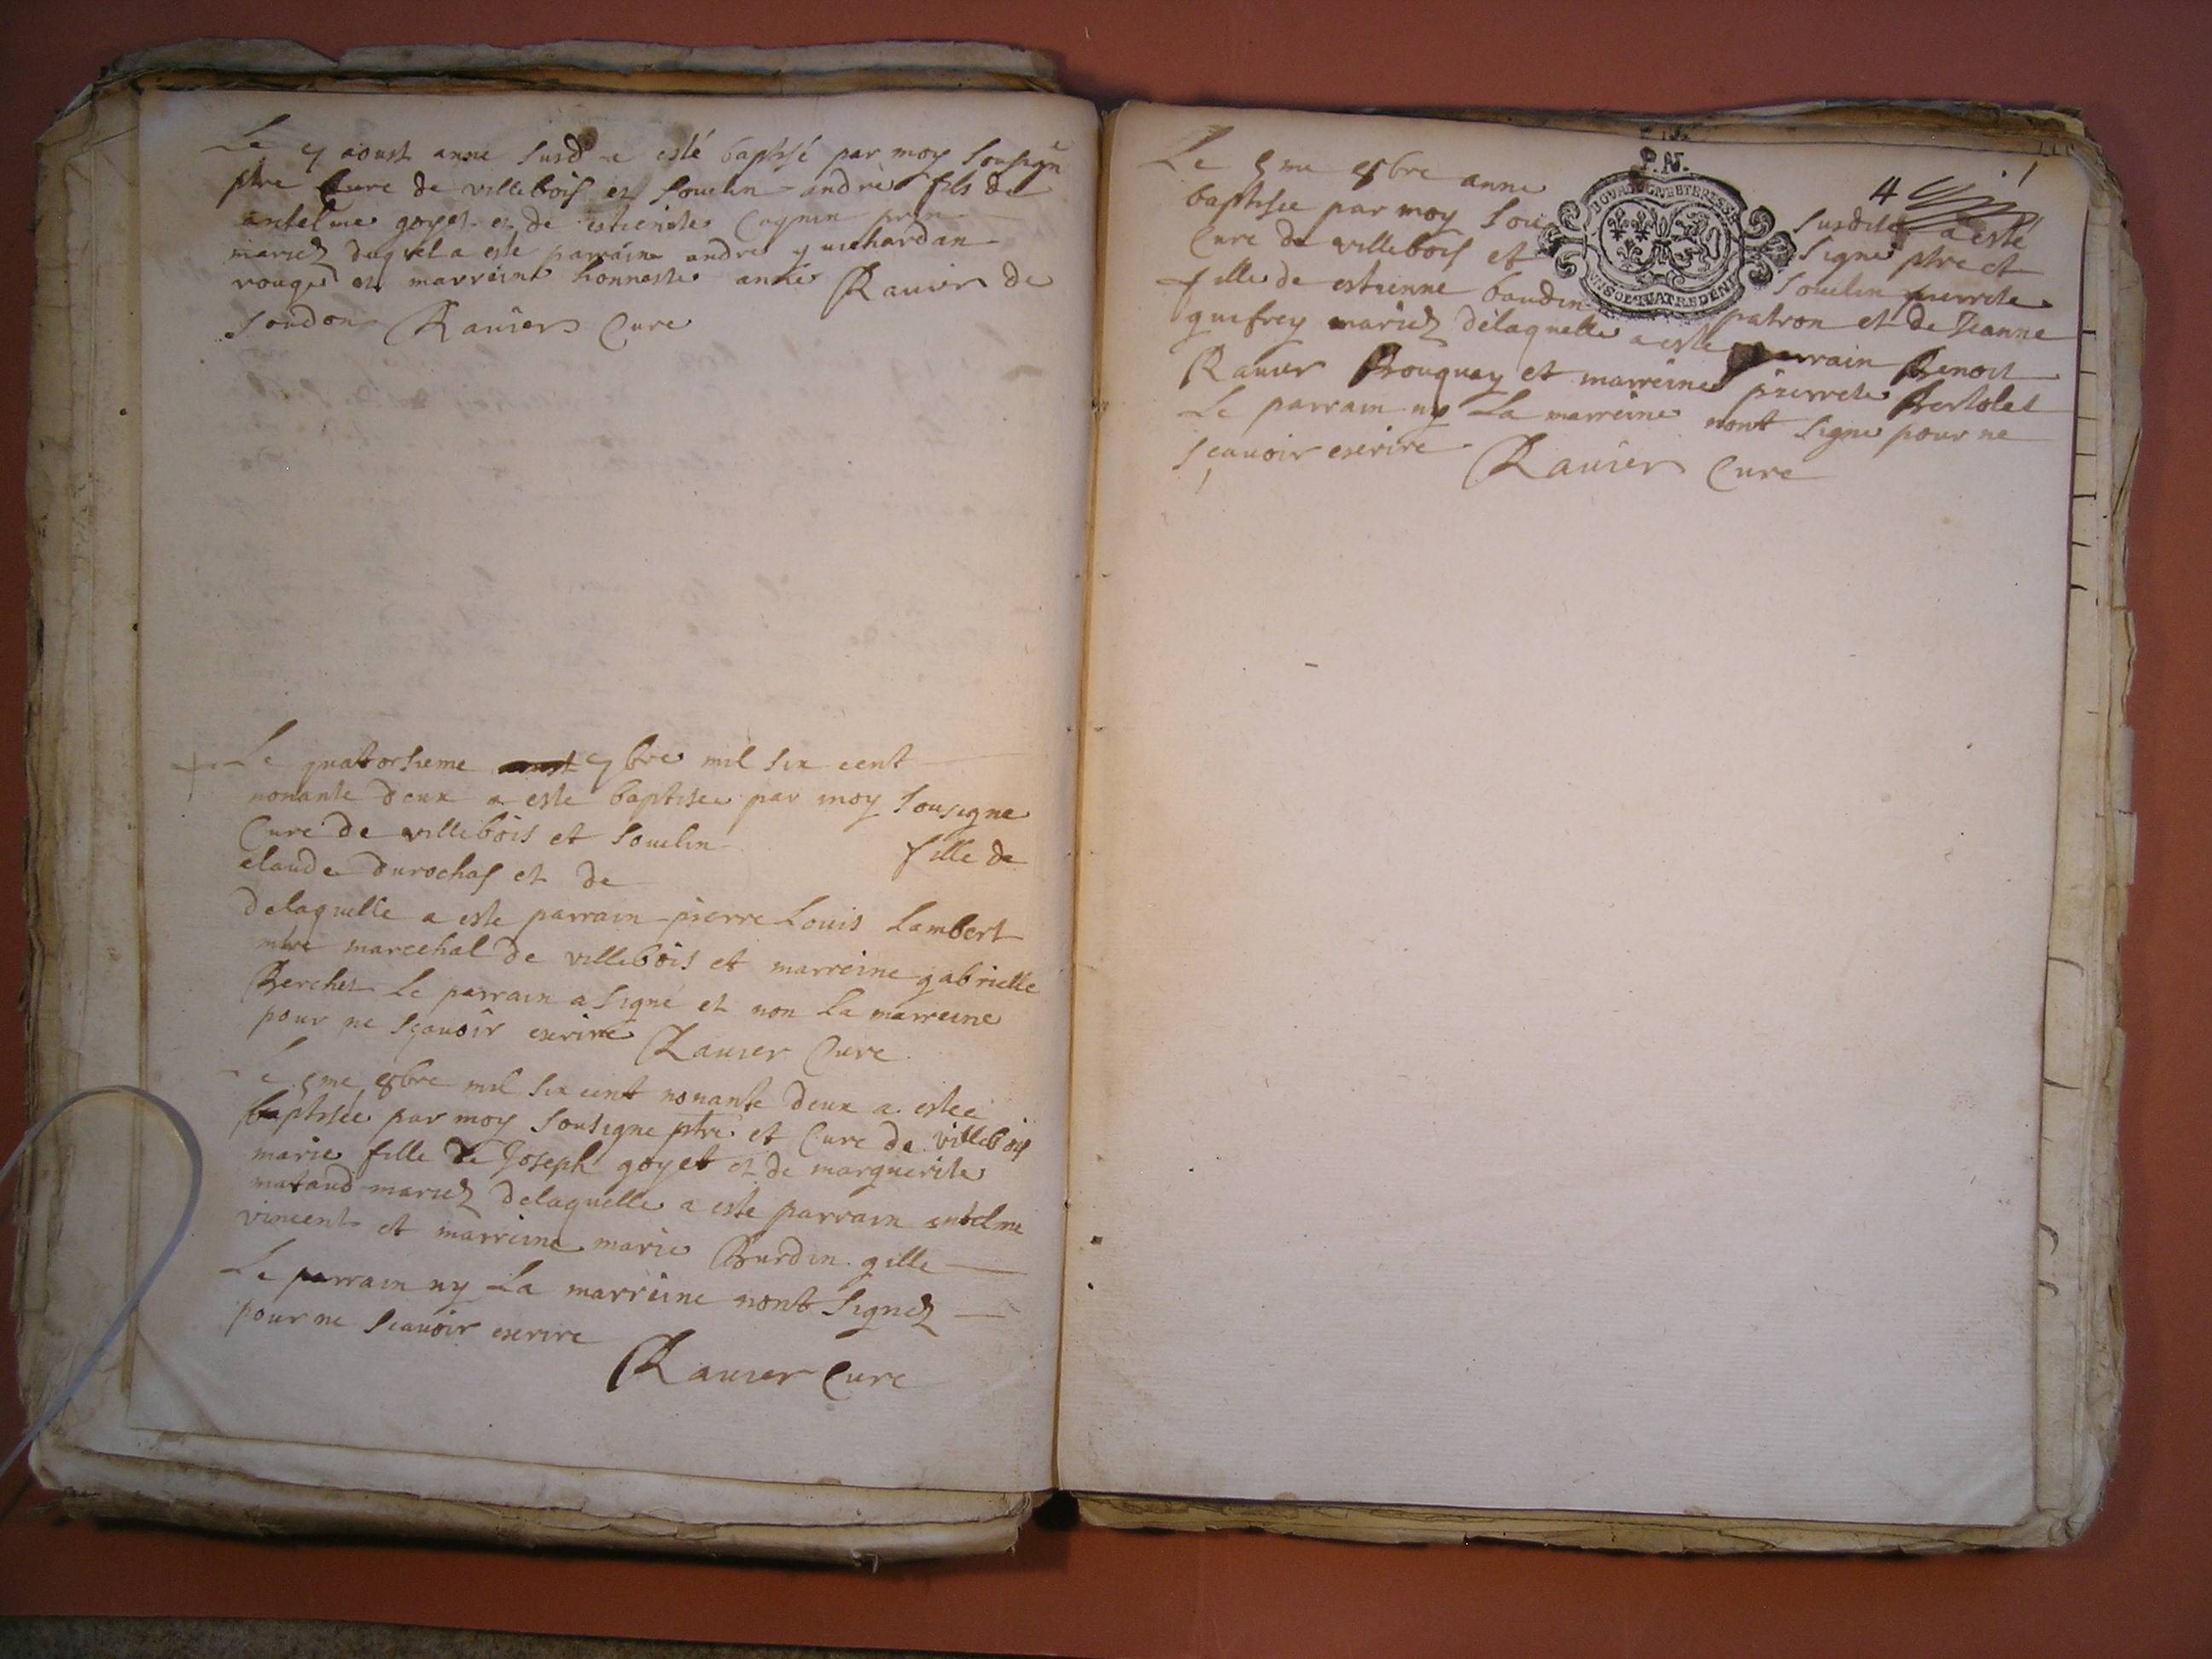 Le 9 aoust anne susd a esté baptisé par moy sousigñ
ptre Cure de villebois et souclin andre fils de
antelme goyet et de estiennete Cognin prin
mariez duquel a este parraine andre guichardan
rouge et marreine honneste anne Ravier de
soudon Ravier Cure
Le quatorsieme 7bre mil six cent
nonante deux a este baptisee par moy sousigne
Cure de villebois et souclin fille de
claude durochas et de
delaquelle a este parrain pierre Louis Lambert
mtre marechal de villebois et marreine gabrielle
Berchet Le parrain a signé et non La marreine
pour ne sçavoir escrire Ravier Cure
Le 5me 8bre mil six cent nonante deux a estee
baptisée par moy sousigne ptre et Cure de villebois
marie fille de Joseph goyet et de marguerite
mataud mariez delaquelle a este parrain antelme
vincent et marreine marie Burdin gille
Le parrain ny La marreine nont signez
pour ne scavoir escrire
Ravier Cure
P.N.
4
Le 5me 8bre anne susdite a esté
baptisee par moy sousigne ptre et
Cure de villebois et souclin pierrete
fille de estienne baudin patron et de Jeanne
quefrey mariez delaquelle a este parrain Benoit
Ravier Bouquay et marreine pierrete Bertolet
Le parrain ny La marreine nont signe pour ne
sçavoir escrire Ravier Cure